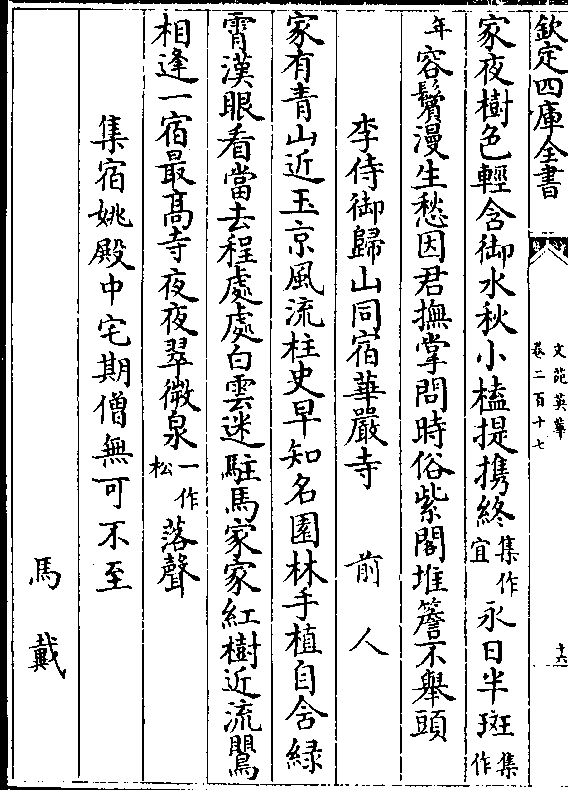 欽定四庫全書
文苑英華
卷二百十七
十六
家夜樹色輕含御水秋小榼提攜終集作宜永日半斑集作
年容鬢漫生愁因君撫掌問時俗紫閣堆簷不舉頭
李侍御歸山同宿華嚴寺 前人
家有青山近玉京風流柱史早知名園林手植自含緑
霄漢眼看當去程處處白雲迷駐馬家家紅樹近流鶯
相逢一宿最髙寺夜夜翠微泉一作松落聲
集宿姚殿中宅期僧無可不至
馬戴